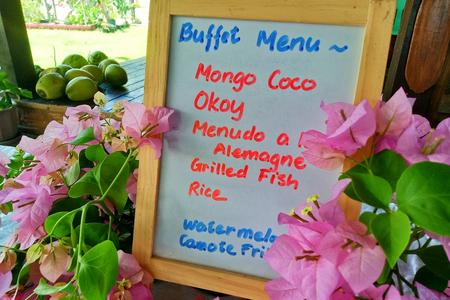 Buffet Menu ~
Mongo Coco
Okoy
Menudo a
Alemagne
Grilled Fish
Rice
watermelo
Camote Fri